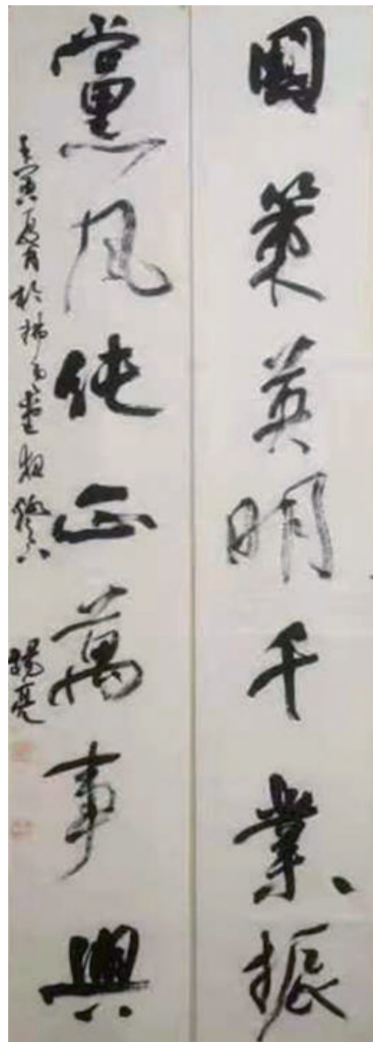 國策英明千業振
黨風純正萬事興
壬寅夏月於
楊亮